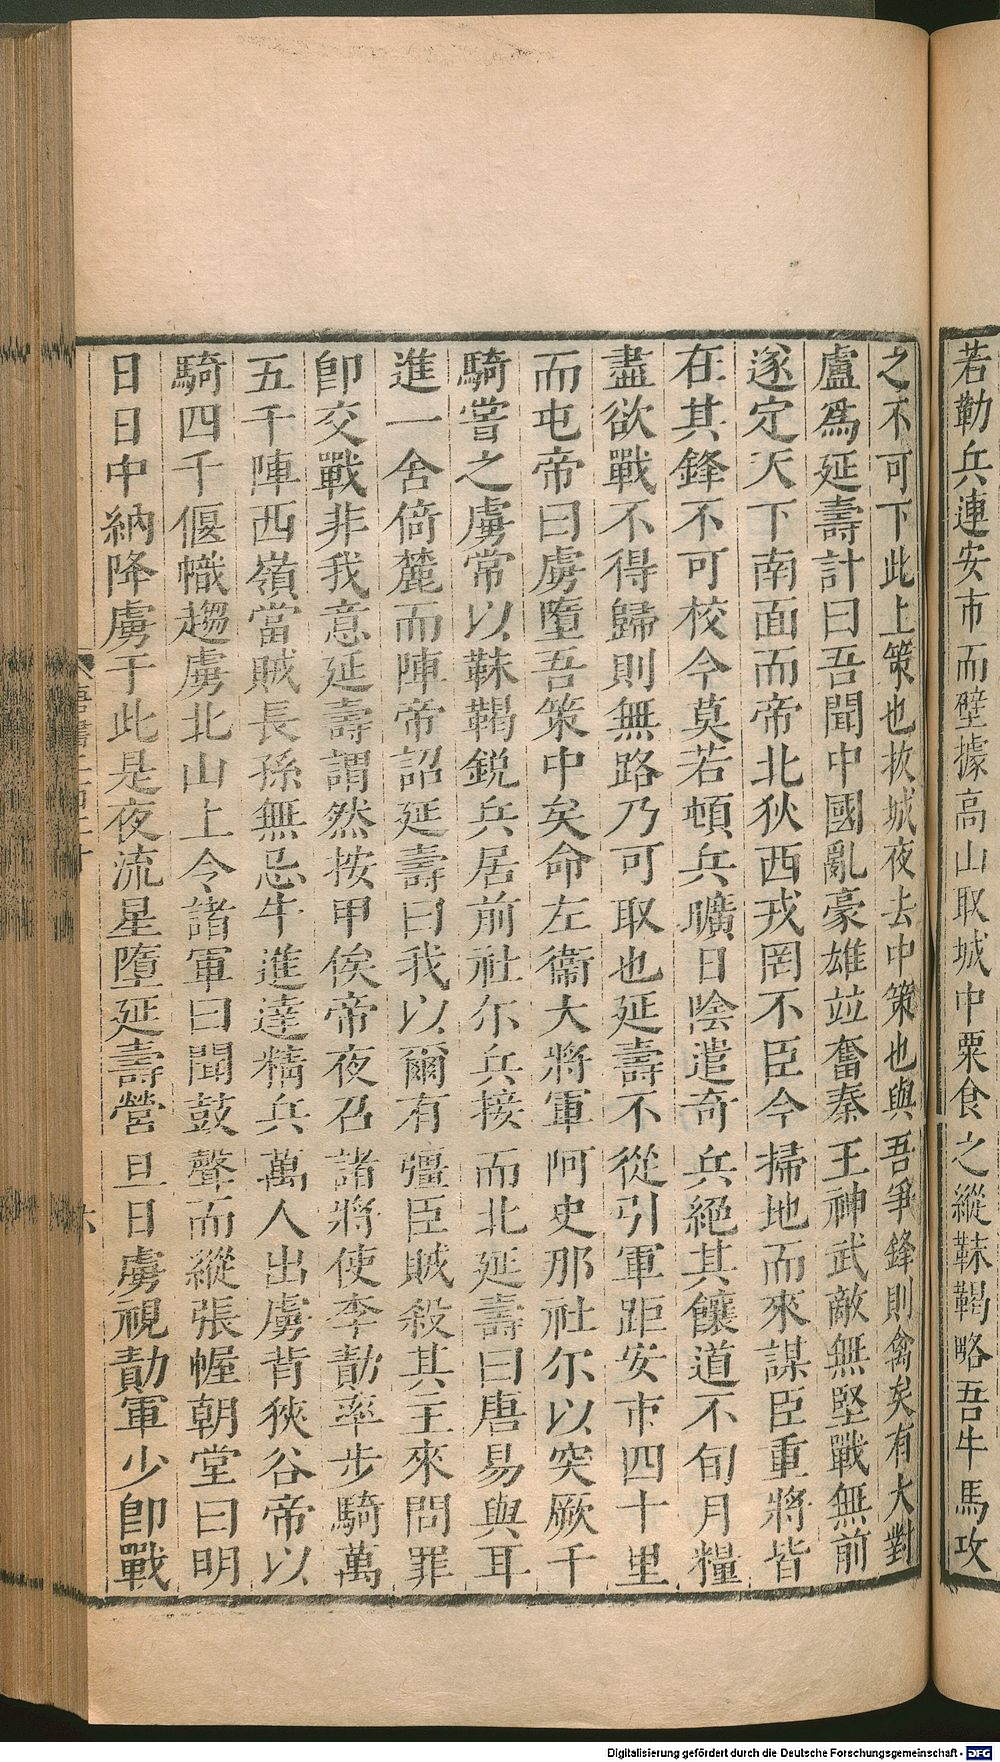 若勒兵連安市而壁據高山取城中粟食之縱靺鞨略吾牛馬攻
之不可下此上策也拔城夜去中策也與吾爭鋒則禽矣有大對
盧爲延壽計曰吾聞中國亂豪雄竝奮秦王神武敵無堅戰無前
遂定天下南面而帝北狄西戎罔不臣今掃地而來謀臣重將皆
在其鋒不可校今莫若頓兵曠日陰遣奇兵絕其饟道不旬月糧
盡欲戰不得歸則無路乃可取也延壽不從引軍距安市四十里
而屯帝曰虜墮吾策中矣命左衞大將軍阿史那社尔以突厥千
騎嘗之虜常以靺鞨銳兵居前社尔兵接而北延壽曰唐易與耳
進一舍倚麓而陣帝詔延壽曰我以爾有彊臣賊殺其主來問罪
卽交戰非我意延壽謂然按甲俟帝夜召諸將使李勣率步騎萬
五千陣西嶺當賊長孫無忌牛進達精兵萬人出虜背狹谷帝以
騎四千偃幟趨虜北山上令諸軍曰聞鼓聲而縱張幄朝堂曰明
日日中納降虜于此是夜流星墮延壽營旦日虜視勣軍少卽戰
唐書二百二十
六
Digitalisierung gefördert durch die Deutsche Forschungsgemeinschaft - DFG